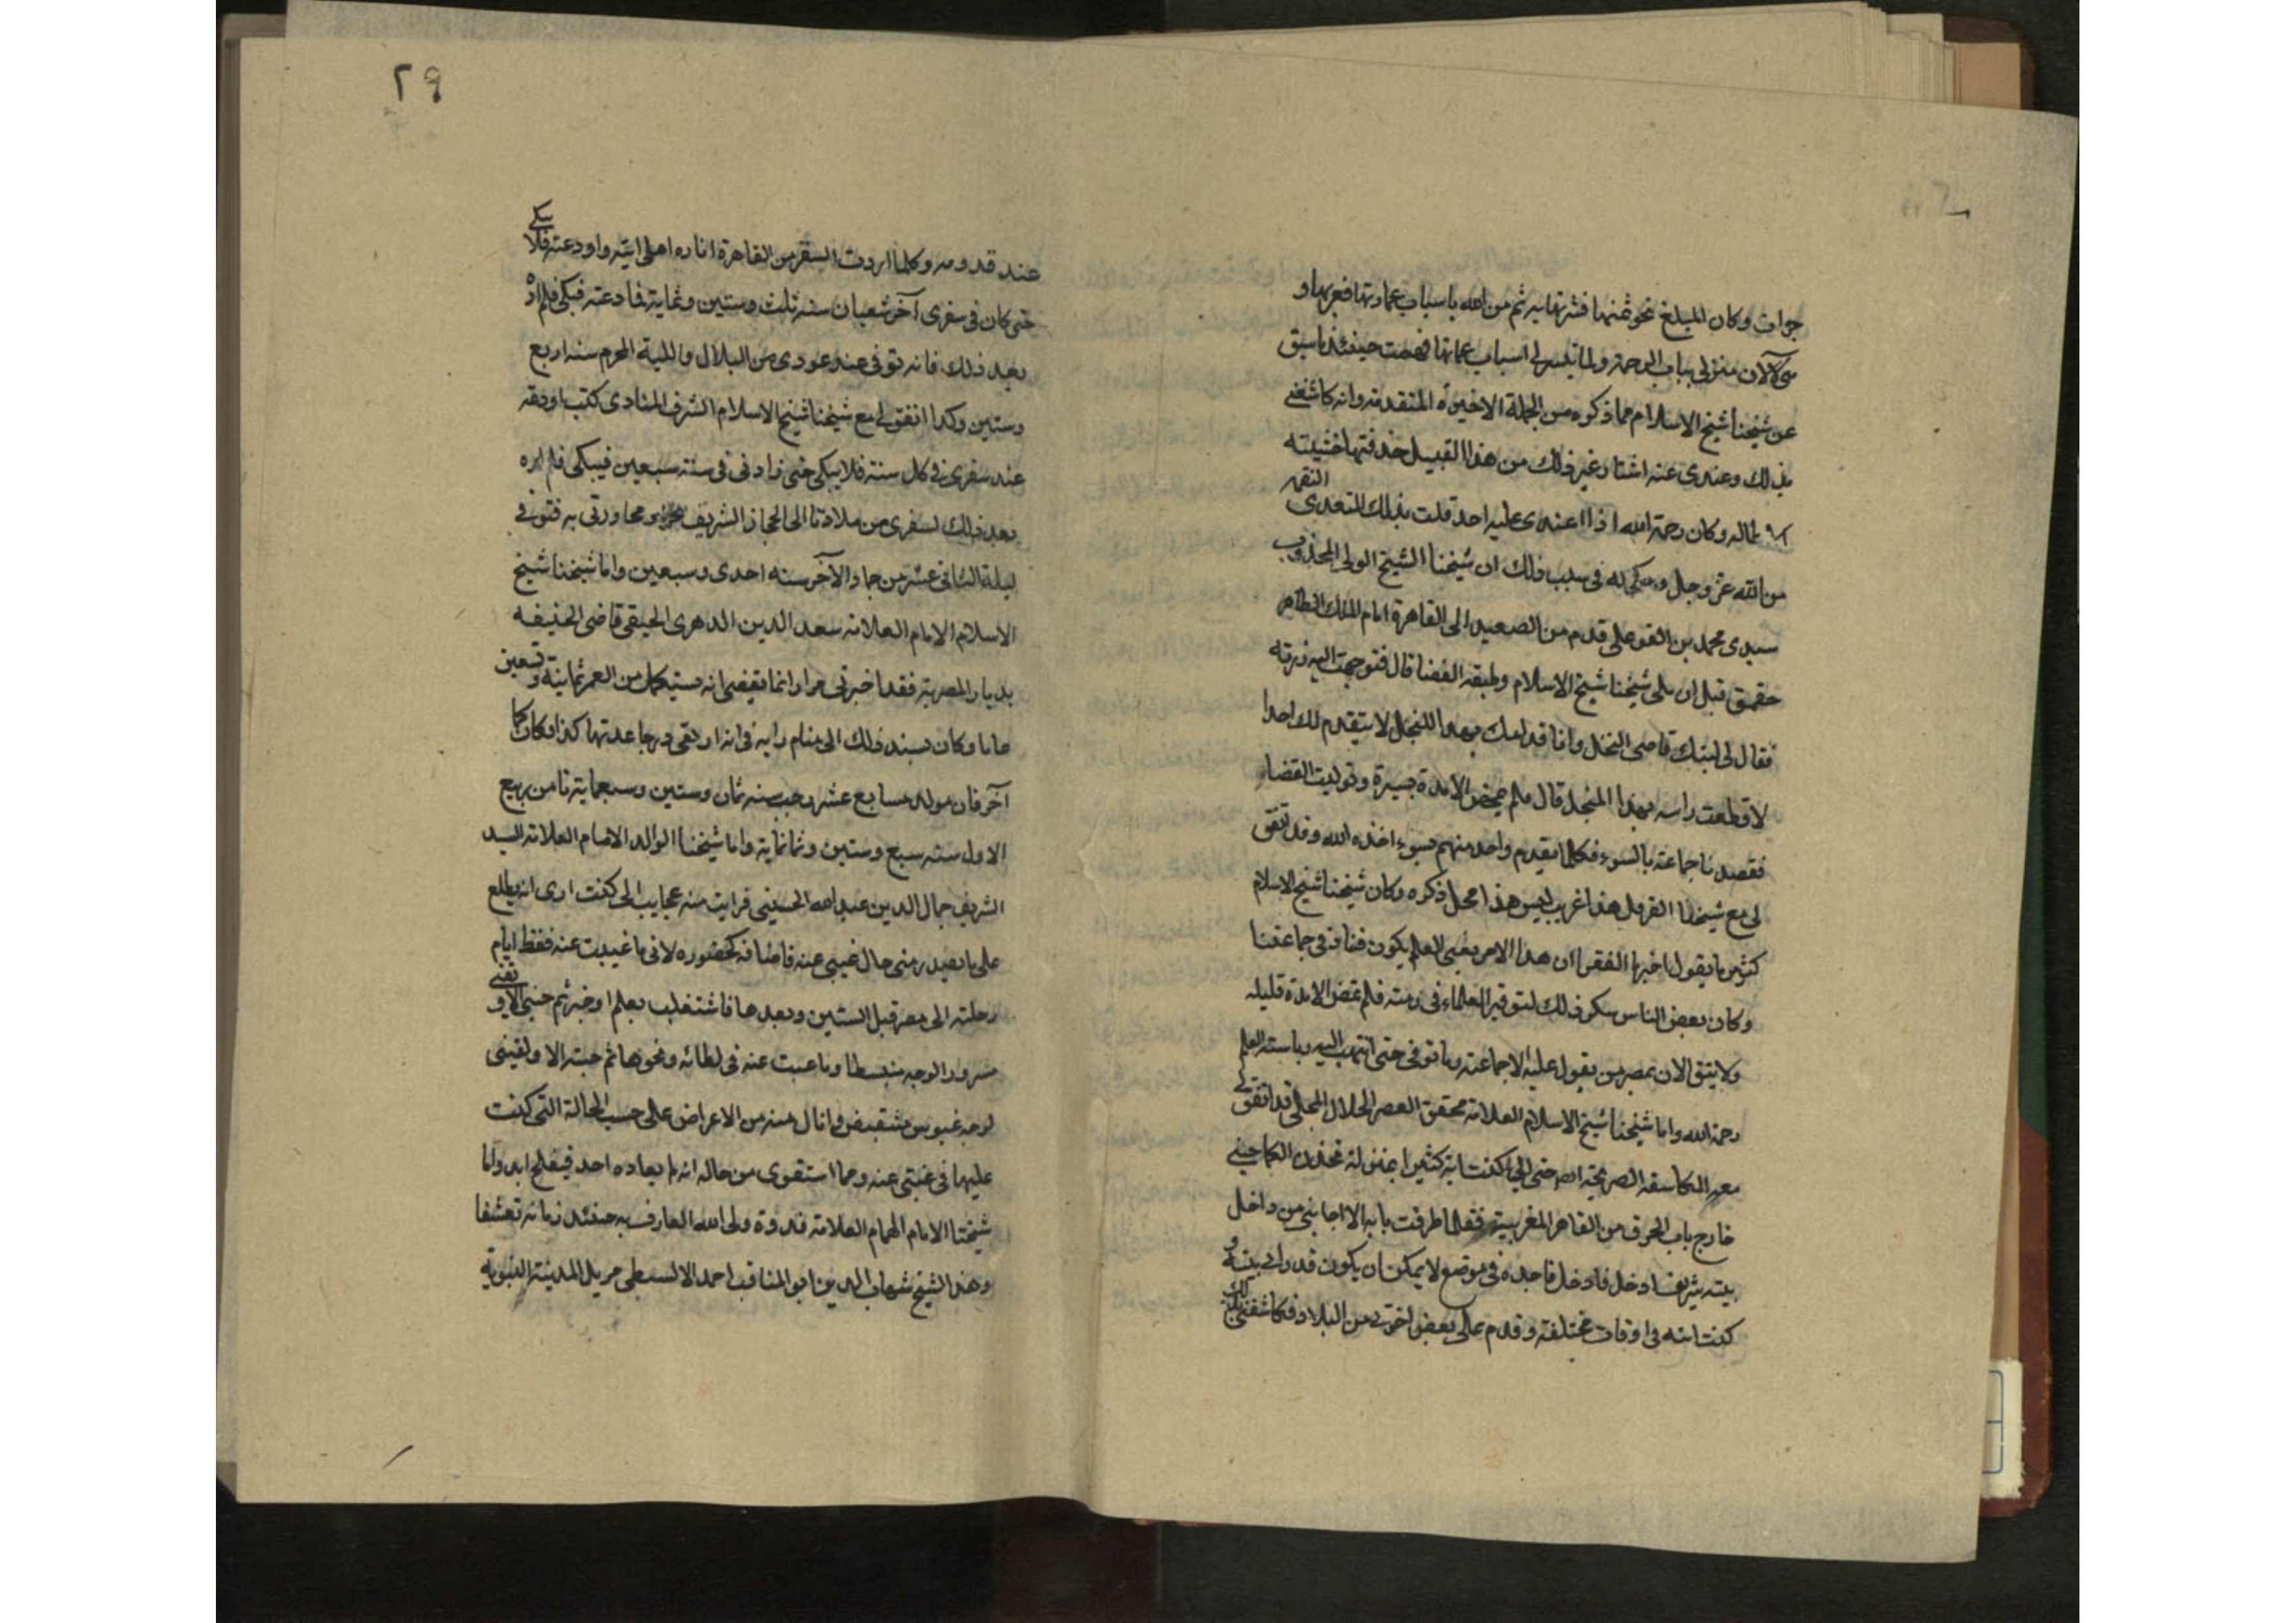 جوات وكان المبلغ نحو ثمنها فشرتها به ثم من الله باسباب عمارتها فعمرتها و
الآن منزلى بباب الرحمة ولما تيسر لى اسباب عمارتها فهمت حينئذ ما سبق
عن شيخنا شيخ الاسلام مما ذكره من الجملة الاخيرة المتقدمة وانه كاشفنى
بذلك وعندى عنه اشيا وغير ذلك من هذا القبيل حذفتها خشيته
وكان رحمة الله اذا اعتدى عليه احد قلت بذلك المتعدى النقمة
من الله عز وجل وحكى له فى سبب ذلك ان شيخنا الشيخ الولى المجذوب
سيدى محمد بن القوعلى قدم من الصعيد الى القاهرة امام الملك الظاهر
حقمق قبل ان يلى شيخنا شيخ الاسلام وظيفه القضا قال فتوجهت اليه زرته
فقال لى ابنك قاضى النخل وانا قدامك بهذا المنجل لا يتقدم لك احدا
لاقطعت راسه بهذا المنجل قال فلم تمض الا مدة يسيرة وتوليت القضا
فقصدنا جماعته بالسوء فكلما تقدم واحد منهم بسوء اخذه الله وقد اتفق
لى مع شيخنا القرمل هذا غريب ليس هذا محل ذكره وكان شيخنا شيخ الاسلام
كثير ما يقول اخبرنا الفقرا ان هذا الامر يعنى العلم يكون فناؤه فى جماعتنا
وكان بعض الناس ينكر ذلك لتوفير العلماء فى زمنه فلم تمض الا مدة قليله
ولا يبق الان بمصر من يعول عليه الا جماعته وما توفى حتى انتهت اليه رياسة العلم
رحمة الله واما شيخنا شيخ الاسلام العلامة محقق العصر الجلال المحلى قد اتفق لى
معه المكاشفه الصريحة حتى انى كنت اتيه كثيرا بمنزله
خارج باب الخرق من القاهر المغربية فقلما طرقت بابه الا اجابنى من داخل
بيته شريف ادخل فادخل فاجده فى موضع لا يمكن ان يكون قد رانى بيته و
كنت اتيه فى اوقات مختلفة وقدم على بعض اخوتى من البلاد فكاشفنى بذلك
عند قدومه وكلما اردت السفر من القاهرة انا ره اهلى اتيه واودعته فلا يبكى
حتى كان فى سفرى آخر شعبان سنه ثلث وستين وثمايه فادعته فبكى فلم اره
بعد ذلك فانه توفى عند عودى من البلاد الليلة المحرم سنه اربع
وستين وكذا اتفق لى مع شيخنا شيخ الاسلام الشرف المناوى كنت اودعه
عند سفرى فى كل سنة فلا يبكى حتى زادنى فى سنه سبعين فيبكى فلم اره
بعد ذلك لسفرى من بلادنا الى الحجاز الشريف ومجاورتى به فتوفى
ليلة الثانى عشر من جماد الآخر سنه احدى وسبعين واما شيخنا شيخ
الاسلام الامام العلامه سعد الدين الدهرى الحيفى قاضى الحنيفه
بديار المصرية فقد اخبرنى مرارا انما يقضى انه يستكمل من العمر ثمانية وتسعين
عاما وكان يسند ذلك الى منام رايه فى انه ارتقى درجا عدتها كذا فكان كما
آخر فان مولده سابع عشر رجب سنه ثمان وستين وسبعماية ثامن ربيع
الاول سنه سبع وستين وثمانماية واما شيخنا الوالد الامام العلامه السيد
الشريف جمال الدين عبد الله الحسينى فرايت منه عجايب انى كنت ارى انه يطلع
على ما يصدر منى حال غيبى عنه لانى ما غيبت عنه فقط ايام
رحلته الى مصر قبل الستين وبعدها فاشتغلت بعلم او خير ثم جئتى الا و لقينى
مسرور الوجه منبسطا وما غبت عنه فى لطائه ونحوها ثم جيته الا ولقينى
لوجه عبوس منقبض وانال منه من الاعراض على حسب الحالة التى كنت
عليها فى غيبتى عنه ومما استقرى من حاله انه لم يعاده احد فيفلح ابدا واما
شيخنا الامام الهمام العلامة قدوة ولى الله العارف به حينئذ زمانه تعشفا
وهذا الشيخ شهاب الدين ابو المناقب احمد الابسيطى مريل المدينة النبوية
٢٩